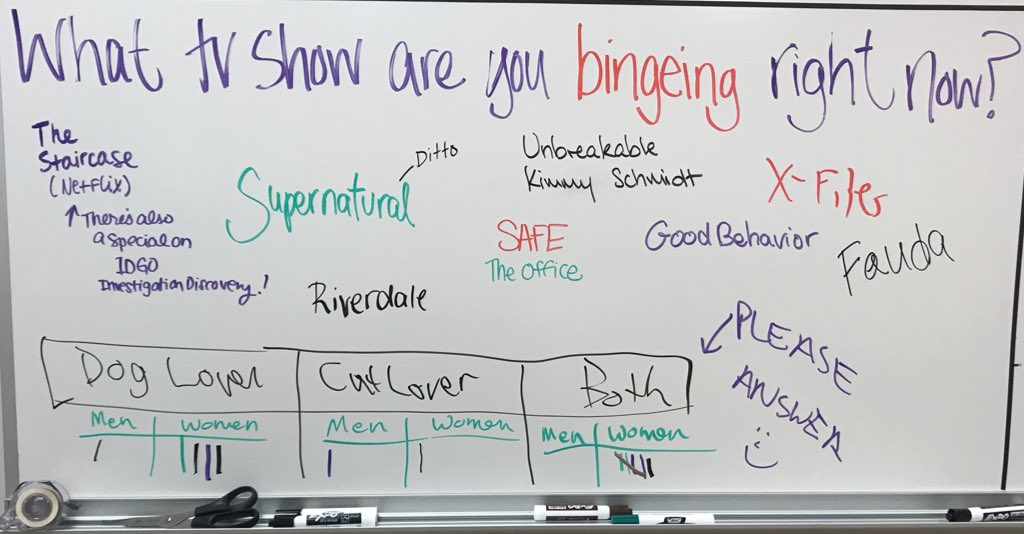 What tv show are you bingeing right now?
The
Staircase
(Netflix)
↑ There's also
a special on
IDGO
Investigation Discovery!
Supernatural
Ditto
Unbreakable
Kimmy Schmidt
X-Files
SAFE
The Office
Good Behavior
Fauda
Riverdale
PLEASE
ANSWER
Dog Lover
Cat Lover
Both
Men
Women
Men
Women
Men
Women